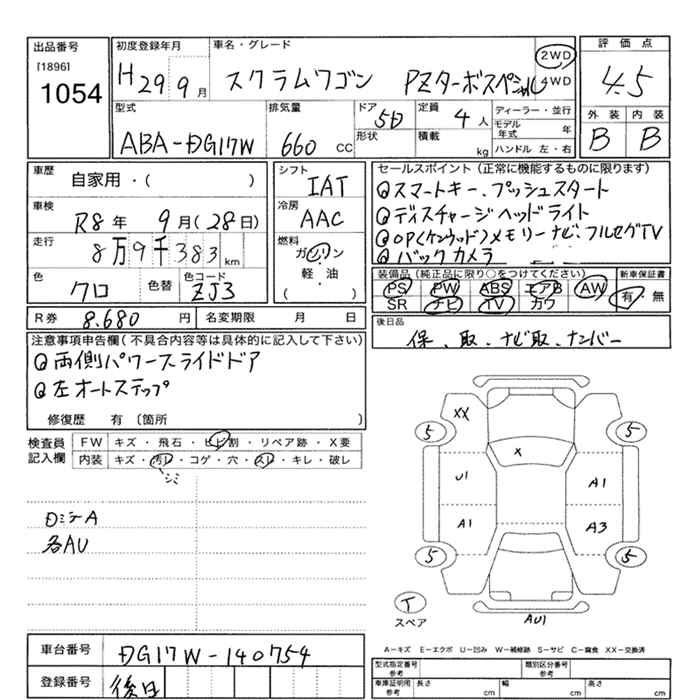 出品番号
[1896]
1054
初度登録年月
H29 9月
車名・グレード
スクラムワゴン PZターボスペシャル
2WD
4WD
評価点
4.5
型式
ABA-DG17W
排気量
660 CC
ドア
5D
形状
定員
4 人
積載
kg
ディーラー・並行
モデル年式 年
ハンドル 左・右
外装 内装
B B
車歴
自家用・( )
車検
R8年 9月(28日)
走行
8万9千383km
色
クロ
色替
色コード
ZJ3
シフト
IAT
冷房
AAC
燃料
ガソリン
・
軽・油
( )
セールスポイント(正常に機能するものに限ります)
スマートキー、プッシュスタート
ディスチャージヘッドライト
OP(ケンウッド)メモリーナビ、フルセグTV
バックカメラ
装備品(純正品に限り○をつけてください)
PS PW ABS エアB AW
SR ナビ TV カワ
新車保証書
有・無
R券 8.680 円
名変期限 月 日
後日品
保、取、ナビ取、ナンバー
注意事項申告欄(不具合内容等は具体的に記入して下さい)
両側パワースライドドア
左オートステップ
修復歴 有〔箇所 〕
検査員記入欄
FW キズ・飛石・ヒビ割・リペア跡・X要
内装 キズ・汚レ・コゲ・穴・スレ・キレ・破レ
シミ
各AU
XX
5 5
X
U1
A1
A1
A3
5 5
T
スペア
AU1
A-キズ E-エクボ U-凹み W-補修跡 S-サビ C-腐食 XX-交換済
車台番号
DG17W-140754
登録番号
後日
型式指定番号 参考
類別区分番号 参考
車庫証明用 参考
長さ cm
幅 cm
高さ cm